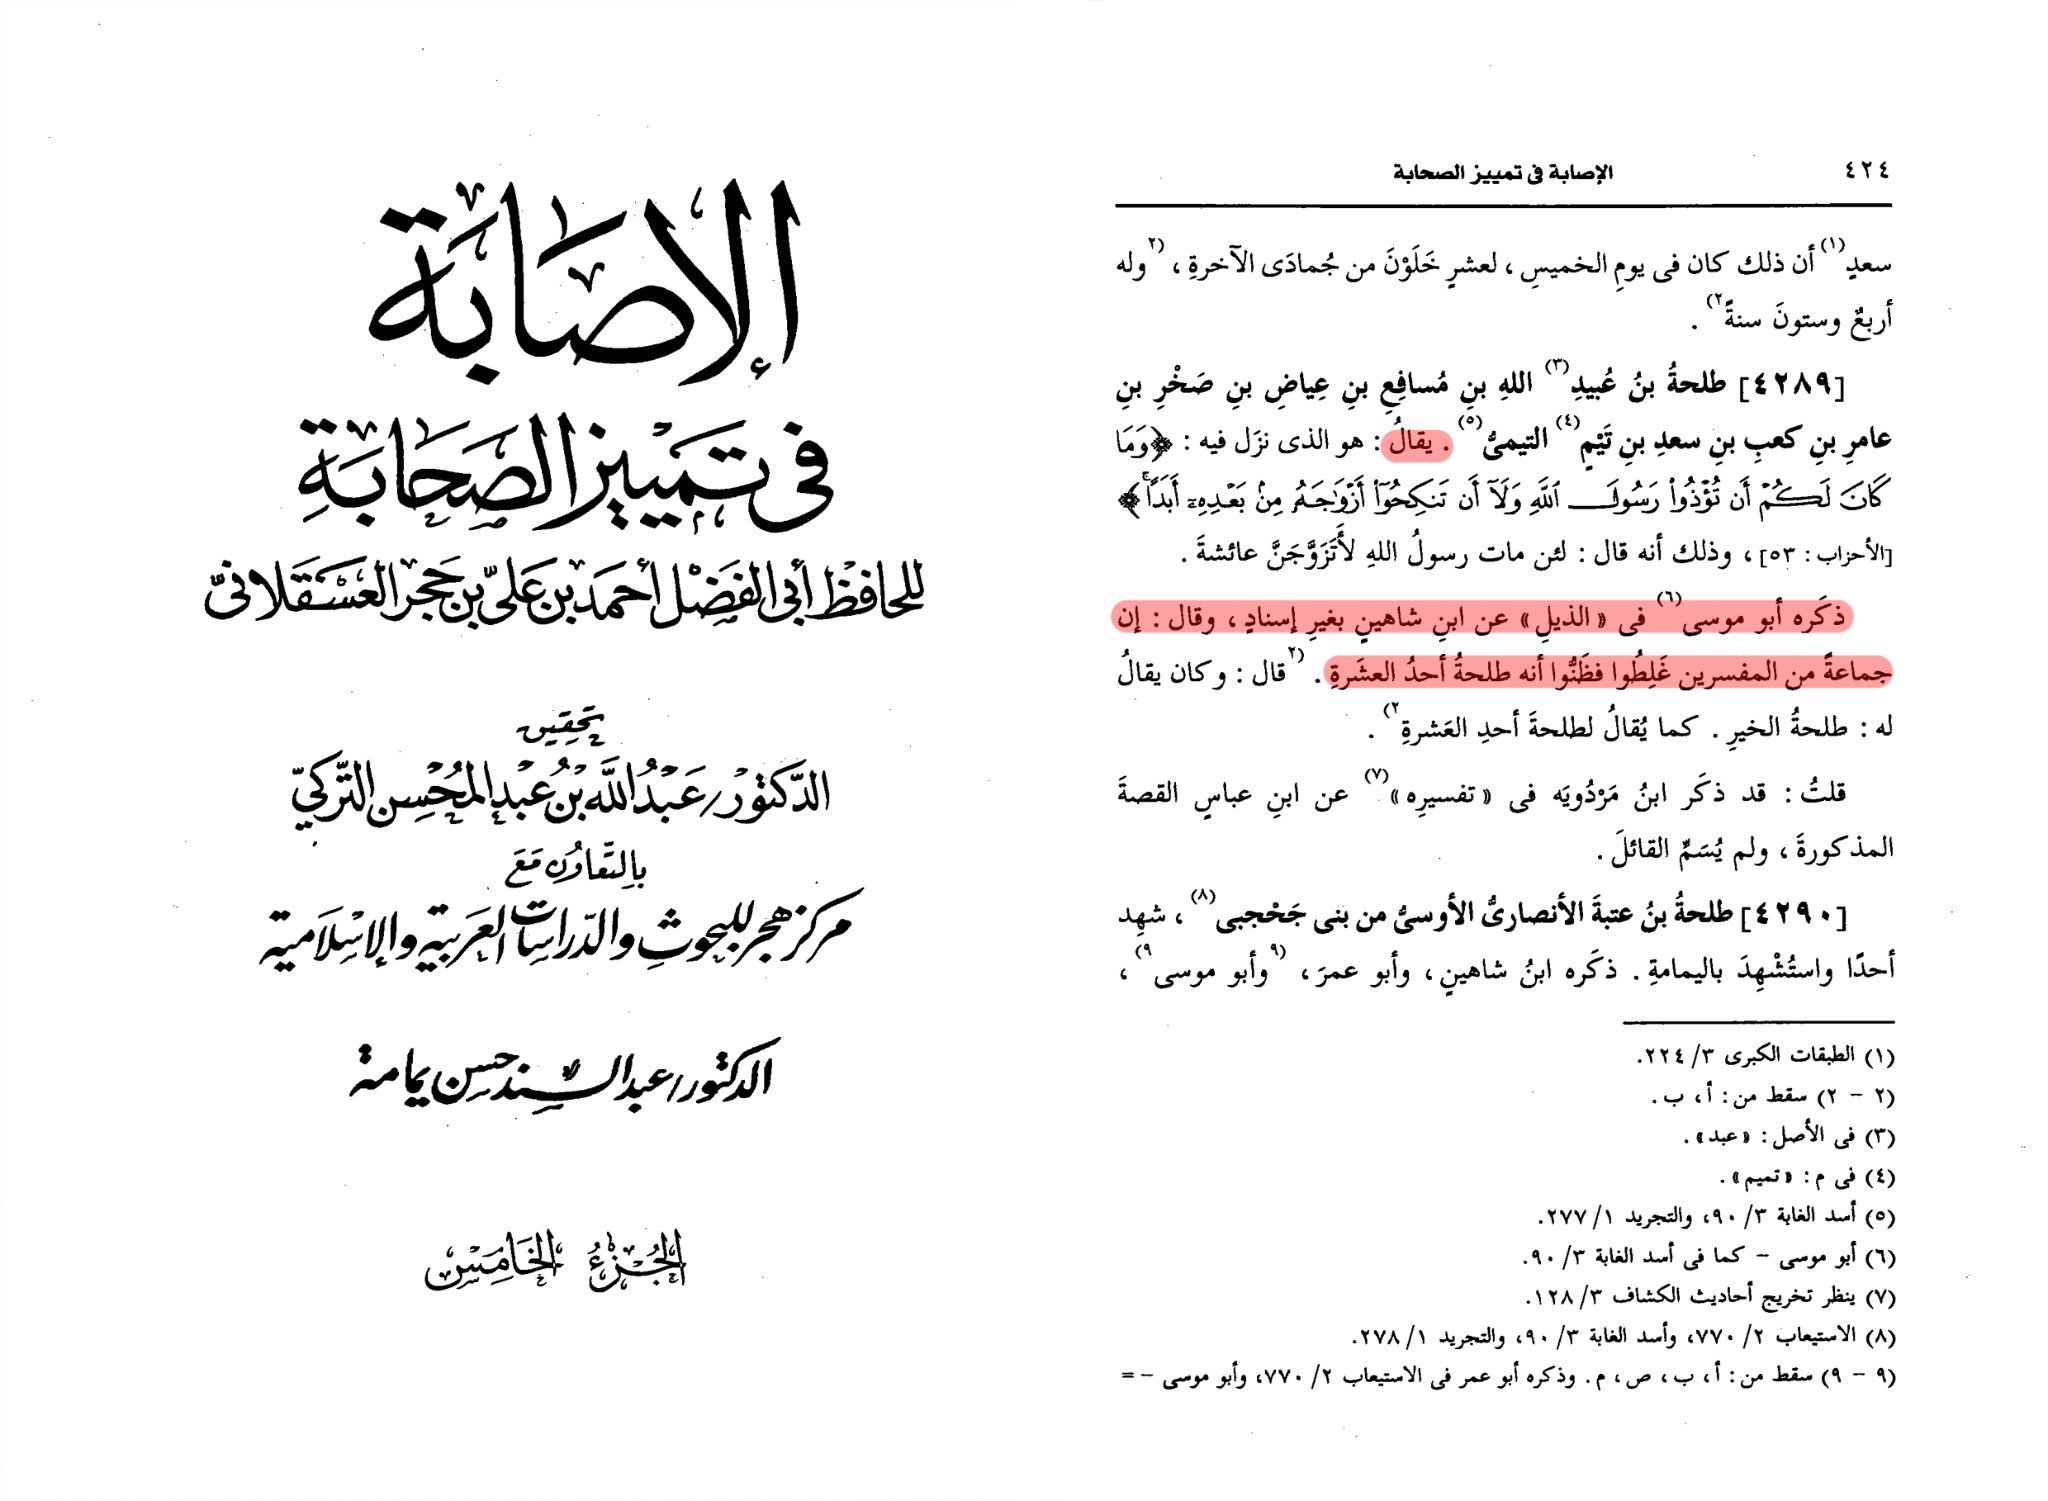 الإصابة
في تمييز الصحابة
للحافظ أبي الفضل أحمد بن علي بن حجر العسقلاني
تحقيق
الدكتور/ عبد الله بن عبد المحسن التركي
بالتعاون مع
مركز هجر للبحوث والدراسات العربية والإسلامية
الدكتور/ عبد السند حسن يمامة
الجزء الخامس
٤٢٤ الإصابة فى تمييز الصحابة
سعدٍ(١) أن ذلك كان فى يومِ الخميسِ ، لعشرٍ خَلَوْنَ من جُمادَى الآخرةِ ، (٢وله
أربعٌ وستونَ سنةً٢) .
[٤٢٨٩] طلحةُ بنُ عُبيدِ(٣) اللهِ بنِ مُسافِعِ بنِ عِياضِ بنِ صَخْرِ بنِ
عامرِ بنِ كعبِ بنِ سعدِ بنِ تَيْمٍ(٤) التيمىُّ(٥) . يقالُ : هو الذى نزَل فيه : ﴿وَمَا
كَانَ لَكُمْ أَن تُؤْذُوا۟ رَسُولَ ٱللَّهِ وَلَآ أَن تَنكِحُوٓا۟ أَزْوَٰجَهُۥ مِنۢ بَعْدِهِۦٓ أَبَدًا﴾
[الأحزاب : ٥٣] ، وذلك أنه قال : لئن مات رسولُ اللهِ لأَتَزَوَّجَنَّ عائشةَ .
ذكَره أبو موسى(٦) فى «الذيلِ» عن ابنِ شاهينٍ بغيرِ إسنادٍ ، وقال : إن
جماعةً من المفسرين غَلِطُوا فظَنُّوا أنه طلحةُ أحدُ العشَرةِ . (٢قال : وكان يقالُ
له : طلحةُ الخيرِ . كما يُقالُ لطلحةَ أحدِ العَشرةِ٢) .
قلتُ : قد ذكَر ابنُ مَرْدُويَه فى «تفسيرِه»(٧) عن ابنِ عباسٍ القصةَ
المذكورةَ ، ولم يُسَمِّ القائلَ .
[٤٢٩٠] طلحةُ بنُ عتبةَ الأنصارىُّ الأوسىُّ من بنى جَحْجبى(٨) ، شهِد
أحدًا واستُشْهِدَ باليمامةِ . ذكَره ابنُ شاهينٍ ، وأبو عمرَ ، (٩وأبو موسى٩) ،
(١) الطبقات الكبرى ٣/ ٢٢٤.
(٢ - ٢) سقط من : أ ، ب .
(٣) فى الأصل : «عبد» .
(٤) فى م : «تميم» .
(٥) أسد الغابة ٣/ ٩٠، والتجريد ١/ ٢٧٧.
(٦) أبو موسى - كما فى أسد الغابة ٣/ ٩٠.
(٧) ينظر تخريج أحاديث الكشاف ٣/ ١٢٨.
(٨) الاستيعاب ٢/ ٧٧٠، وأسد الغابة ٣/ ٩٠، والتجريد ١/ ٢٧٨.
(٩ - ٩) سقط من : أ ، ب ، ص ، م . وذكره أبو عمر فى الاستيعاب ٢/ ٧٧٠، وأبو موسى - =